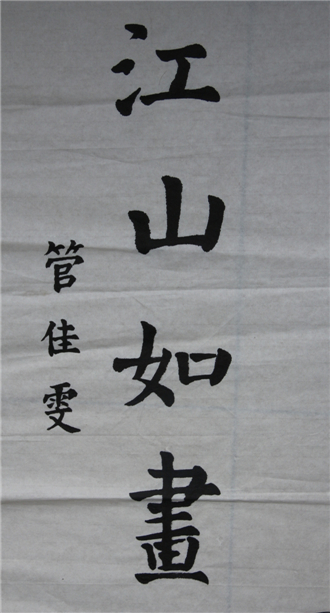 江山如畫
管佳雯